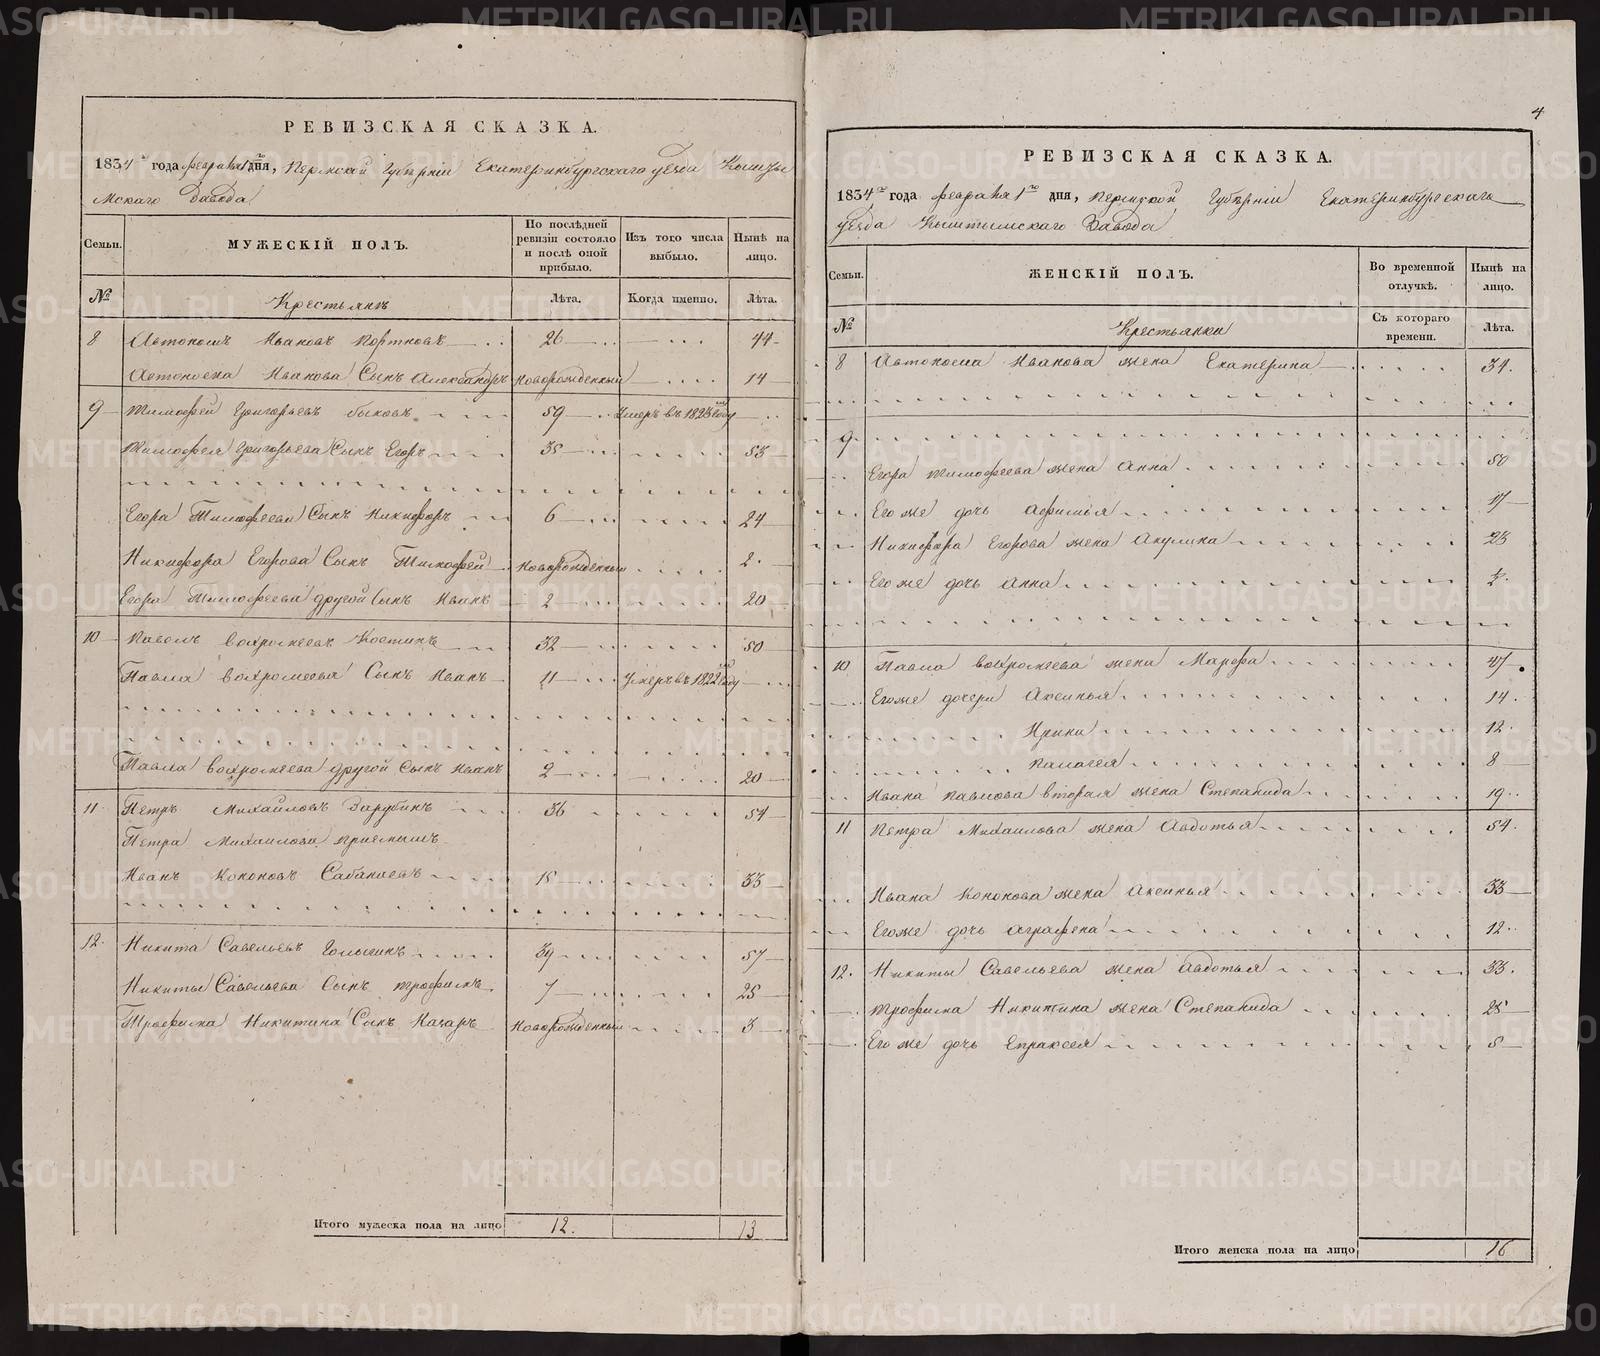 РЕВИЗСКАЯ СКАЗКА.
1834 года февраля 1 дня, Пермской Губѣрніи Екатеринбургскаго уезда Кышты
мскаго Завода
Семьи.
МУЖЕСКІЙ ПОЛЪ.
По послѣдней ревизіи состояло и послѣ оной прибыло.
Изъ того числа выбыло.
Нынѣ на лицо.
№
Крестьянъ
Лѣта.
Когда именно.
Лѣта.
8 Автономъ Ивановъ Портновъ 26 44
Автонома Иванова Сынъ Александръ новорожденный 14
9 Тимофей Григорьевъ быковъ 59 Умеръ въ 1823 году
Тимофея Григорьева Сынъ Егоръ 35 53
Егора Тимофеева Сынъ Никифоръ 6 24
Никифора Егорова Сынъ Тимофей новорожденный 2
Егора Тимофеева другой Сынъ Иванъ 2 20
10 Павелъ вахромеевъ Костинъ 32 50
Павла вахромеева Сынъ Иванъ 11 Умеръ въ 1822 году
Павла вахромеева другой Сынъ Иванъ 2 20
11 Петръ Михайловъ Зарубинъ 36 54
Петра Михаилова приемышъ
Иванъ Кононовъ Сабанаевъ 15 33
12. Никита Савельевъ Голыгинъ 39 57
Никиты Савельева Сынъ трофимъ 7 25
Трофима Никитина Сынъ Назаръ новорожденный 3
Итого мужеска пола на лицо 12. 13
4
РЕВИЗСКАЯ СКАЗКА.
1834 года февраля 1 дня, пермской Губѣрніи Екатеринбургскаго
уезда Кыштымскаго Завода
Семьи.
ЖЕНСКІЙ ПОЛЪ.
Во временной отлучкѣ.
Нынѣ на лицо.
№
Крестьянки
Съ котораго времени.
Лѣта.
8 Автонома Иванова жена Екатерина 34.
9
Егора тимофеева жена Анна 50
Его же дочь Афимія 17
Никифора Егорова жена Акулина 23
Его же дочь Анна ½.
10 Павла вахромеева жена Марфа 47
Егоже дочери Аксинья 14
Ирина 12
палагея 8
Ивана павлова вторая жена Степанида 19
11 Петра Михаилова жена Авдотья 54.
Ивана Кононова жена Аксинья 33
Егоже дочь аграфена 12
12. Никиты Савельева жена Авдотья 53.
трофима Никитина жена Степанида 25
Его же дочь Епраксея 5
Итого женска пола на лицо 16
METRIKI.GASO-URAL.RU